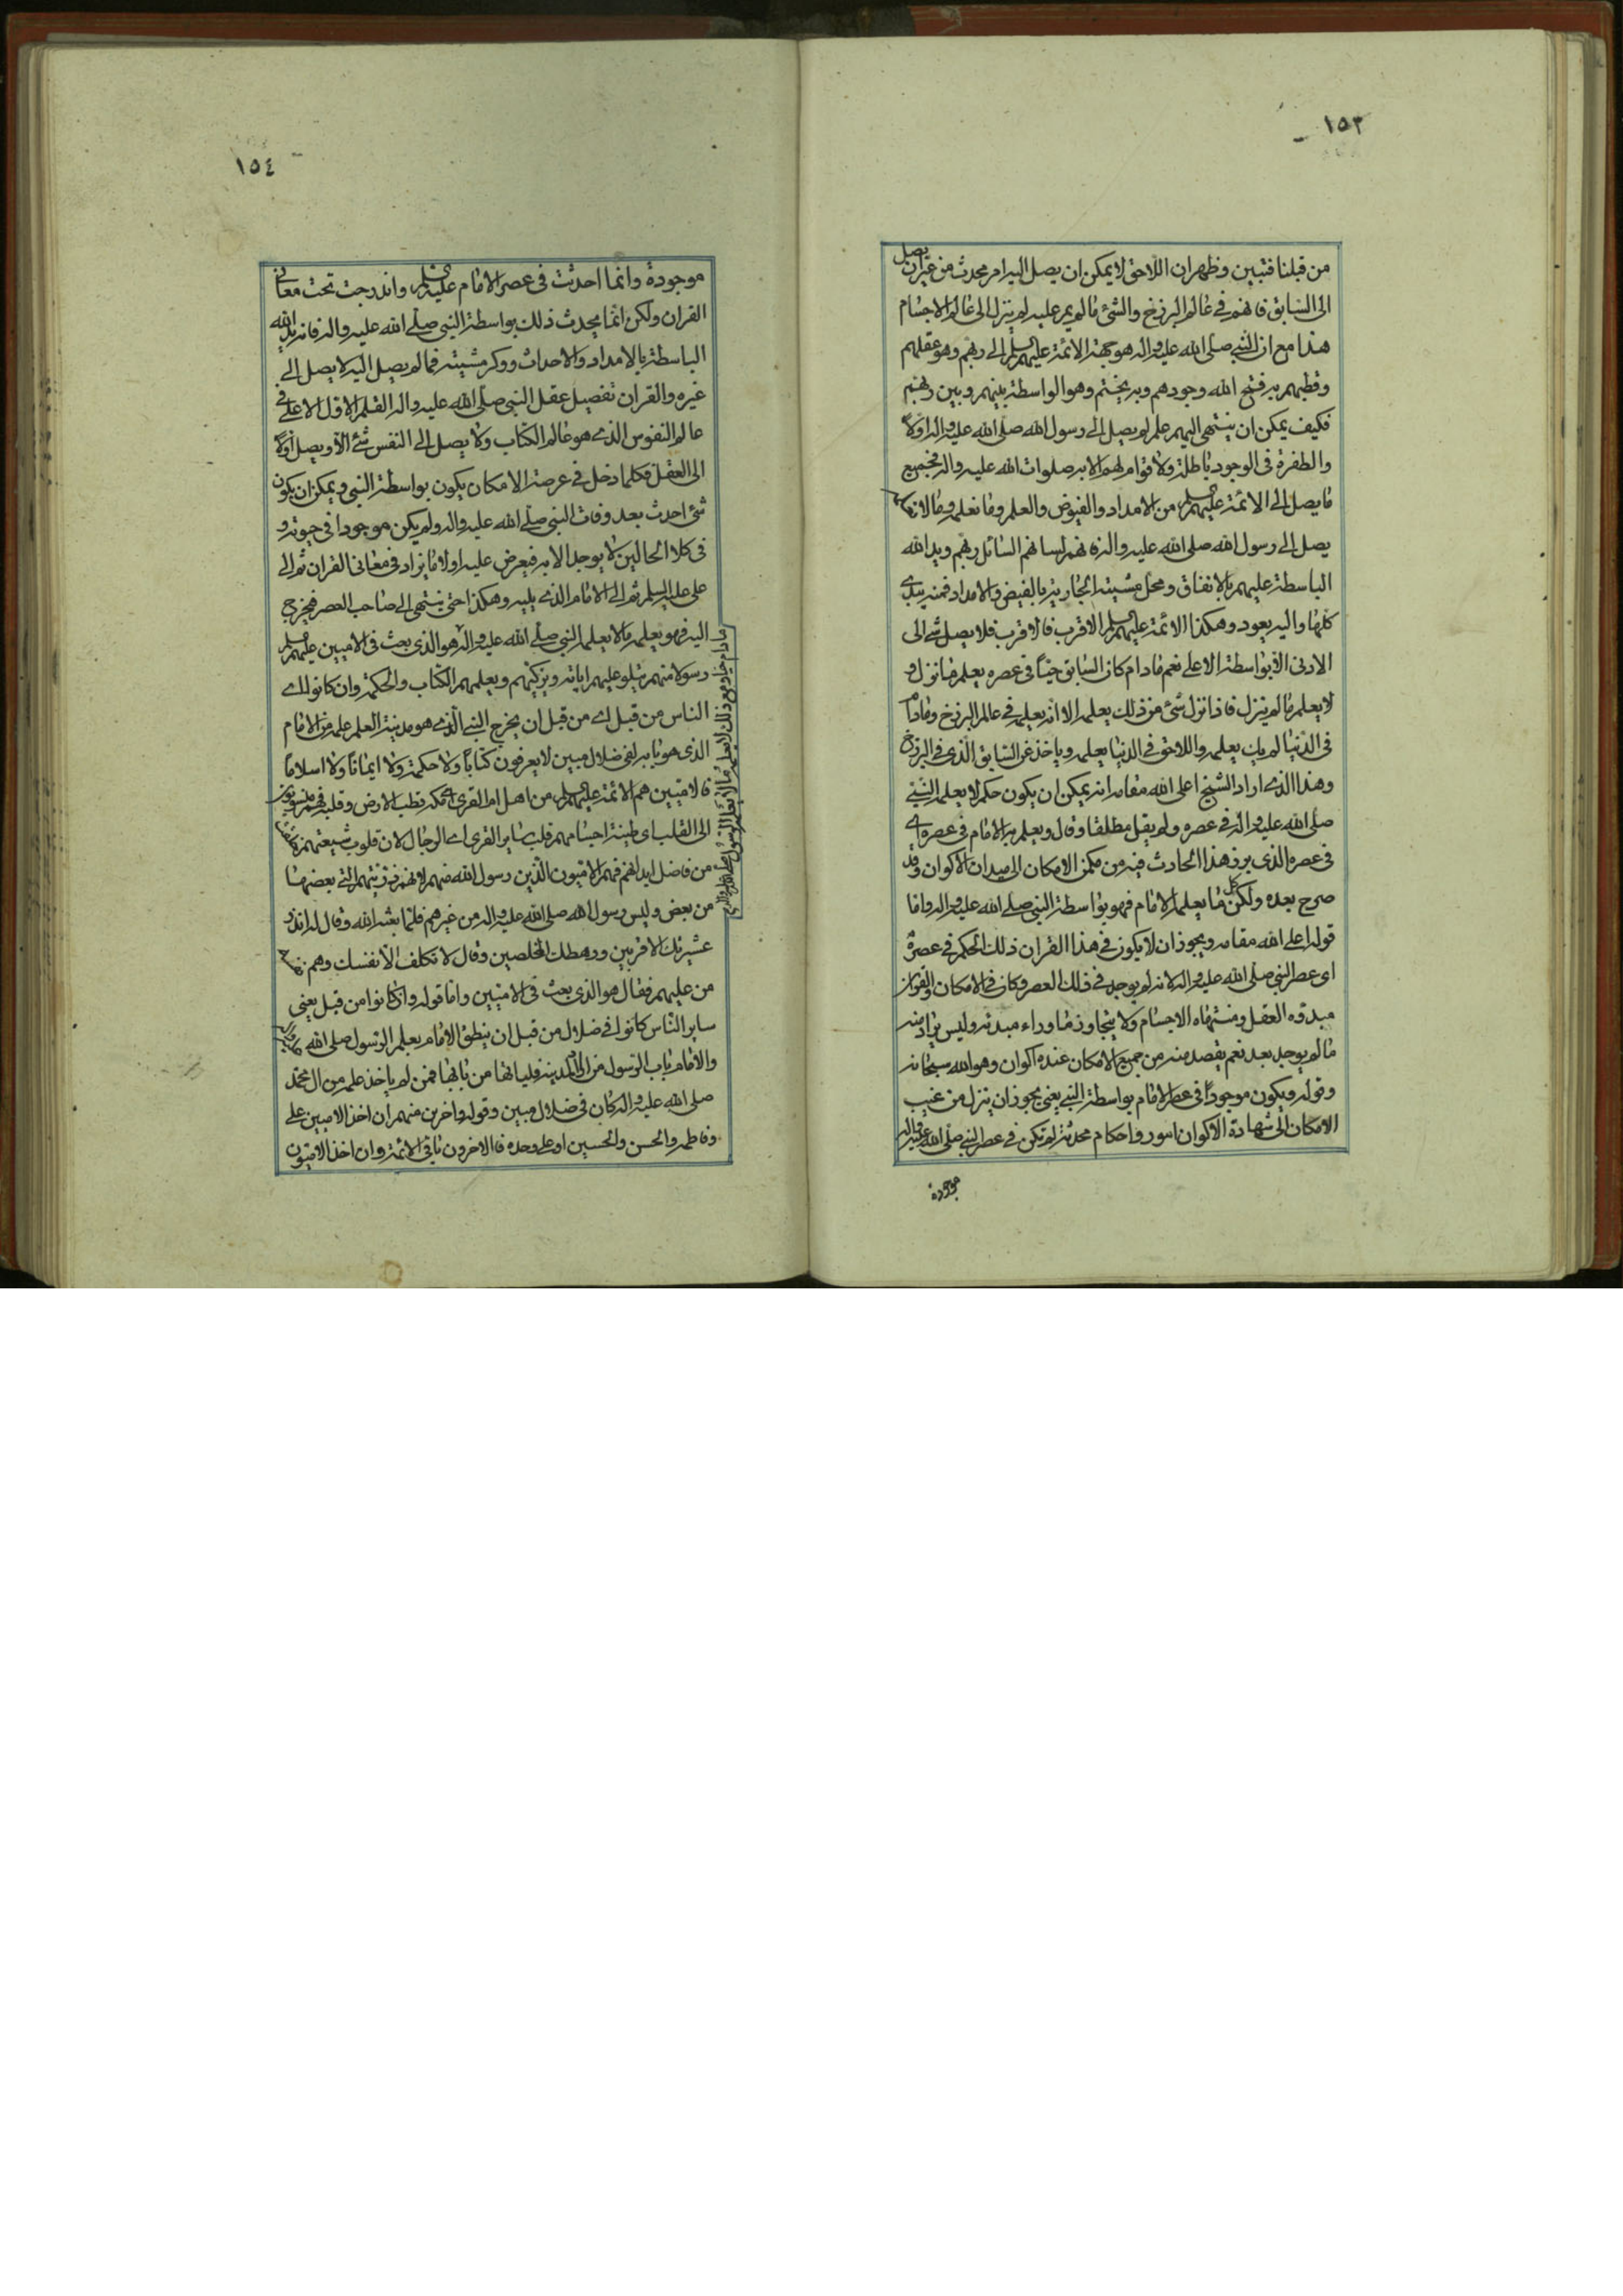 ١٥٣
من قبلنا فتبين وظهر ان اللاحق لا يمكن ان يصل اليه امر محدث من غير ان يصل
الى السابق فانهم في عالم البرزخ والشئ ما لم يمر عليه لم ينزل الى عالم الاجسام
هذا مع ان النبي صلى الله عليه واله هو جهة الائمة عليهم السلم الى ربهم وهو عقلهم
وقطبهم به فتح الله وجودهم وبه يختم وهو الواسطة بينهم وبين ربهم
فكيف يمكن ان ينتهى اليهم علم لم يصل الى رسول الله صلى الله عليه واله اولاً
والطفرة فى الوجود باطلة ولا قوام لهم الا به صلوات الله عليه واله فجميع
ما يصل الى الائمة عليهم السلم من الامداد والفيوض والعلم وما نعلم وما لا
يصل الى رسول الله صلى الله عليه واله فانه لسانهم السائل ربهم ويد الله
الباسطة عليهم بالانفاق ومحل مشيته الجارية بالفيض والامداد فمنه يبتدئ
كلها واليه يعود وهكذا الائمة عليهم السلم الاقرب فالاقرب فلا يصل شئ الى
الادنى الا بواسطة الاعلى نعم مادام كان السابق حيّاً فى عصره يعلم ما نزل و
لا يعلم ما لم ينزل فاذا نزل شئ من ذلك يعلمه الا انه يعلمه في عالم البرزخ ومادام
فى الدنيا لم يك يعلمه واللاحق فى الدنيا يعلمه وياخذ عن السابق الذى في البرزخ
وهذا الذى اراد الشيخ اعلى الله مقامه انه يمكن ان يكون حكم لا يعلمه النبي
صلى الله عليه واله في عصره ولم يقل مطلقا وقال ويعلم به الامام فى عصره اى
فى عصره الذى برز هذا الحادث فيه من مكمن الامكان الى ميدان الاكوان وقد
صرح بعده ولكن كل ما يعلمه الامام فهو بواسطة النبي صلى الله عليه واله واما
قوله اعلى الله مقامه ويجوز ان لا يكون في هذا القران ذلك الحكم في عصره
اى عصر النبي صلى الله عليه واله لانه لم يوجد في ذلك العصر وكان في الامكان والقران
مبدؤه العقل ومنتهاه الاجسام ولا يتجاوز ما وراء مبدئه وليس يراد منه
ما لم يوجد بعد نعم يقصد منه من جميع الامكان عنده اكوان وهو الله سبحانه
وقوله ويكون موجوداً في عصر الامام بواسطة النبي يعنى يجوز ان ينزل من غيب
الامكان الى شهادة الاكوان امور واحكام محدثة لم تكن في عصر النبي صلى الله عليه واله
موجودة
١٥٤
موجودة وانما احدثت فى عصر الامام عليه السلم واندرجت تحت معانى
القران ولكن انما يحدث ذلك بواسطة النبي صلى الله عليه واله فانه يد الله
الباسطة بالامداد والاحداث ووكر مشيته فما لم يصل اليه لا يصل الى
غيره والقران تفصيل عقل النبي صلى الله عليه واله القلم الاول الاعلى في
عالم النفوس الذى هو عالم الكتاب ولا يصل الى النفس شئ الا ويصل اولاً
الى العقل فكلما دخل في عرصة الامكان يكون بواسطة النبي ويمكن ان يكون
شئ احدث بعد وفات النبي صلى الله عليه واله ولم يكن موجودا فى حيوته و
فى كلا الحالين لا يوجد الا به فيعرض عليه اولا ما يزاد فى معانى القران ثم الى
على عليه السلم ثم الى الامام الذى يليه وهكذا حتى ينتهى الى صاحب العصر فيخرج
اليه فهو يعلم ما لا يعلم النبي صلى الله عليه واله هو الذى بعث فى الاميين عليهم السلم
مادام حيا ومع ذلك لا يعلم ما لا يعلم الرسول صلى الله عليه واله
رسولا منهم يتلو عليهم اياته ويزكيهم ويعلمهم الكتاب والحكمة وان كانوا اى
الناس من قبل اى من قبل ان يخرج النبي الذى هو مدينة العلم علمه من الامام
الذى هو بابه لفى ضلال مبين لا يعرفون كتاباً ولا حكمة ولا ايماناً ولا اسلاماً
فالاميين هم الائمة عليهم السلم من اهل ام القرى اى مكة قطب الارض وقلبها فهم منسوبون
الى القلب اى طينة اجسامهم قلب ساير القرى اى الرجال لان قلوب شيعتهم
من فاضل ابدانهم فهم الاميون الذين رسول الله منهم لانهم ذريتهم التى بعضها
من بعض وليس رسول الله صلى الله عليه واله من غيرهم فلما بعثه الله وقال له انذر
عشيرتك الاقربين ورهطك المخلصين وقال لا تكلف الا نفسك وهم
من عليهم فقال هو الذى بعث فى الاميين واما قوله وان كانوا من قبل يعنى
ساير الناس كانوا في ضلال من قبل ان ينطق الامام بعلم الرسول صلى الله
والامام باب الرسول من اراد المدينة فلياتها من بابها فمن لم ياخذ علمه من ال محمد
صلى الله عليه واله كان فى ضلال مبين وقوله واخرين منهم ان اخذ الاميين على
وفاطمه والحسن والحسين او على وحده فالاخرون باقى الائمة وان اخذ الاميون